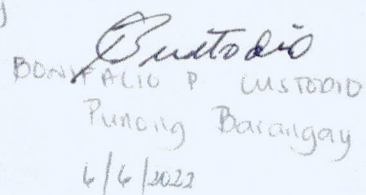 Custodio
BONIFACIO P CUSTODIO
Punong Barangay
6/6/2022